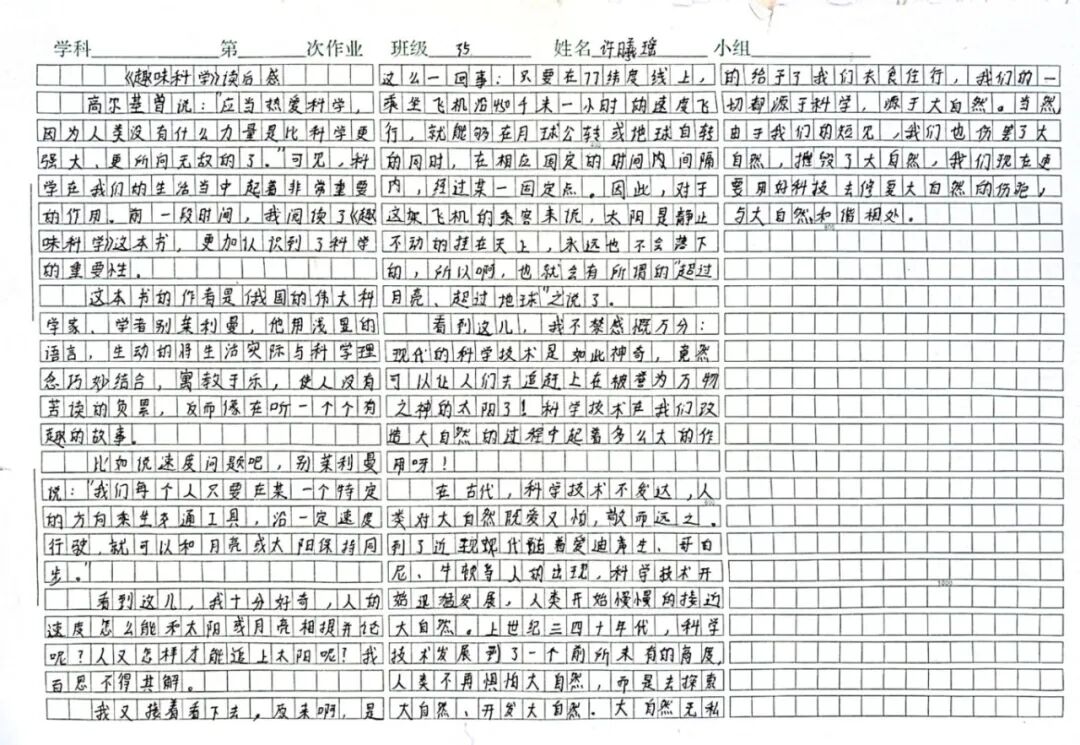 学科 第 次作业 班级 35 姓名 许曦瑶 小组
《趣味科学》读后感
高尔基曾说："应当热爱科学，
因为人类没有什么力量是比科学更
强大、更所向无敌的了。"可见，科
学在我们的生活当中起着非常重要
的作用。前一段时间，我阅读了《趣
味科学》这本书，更加认识到了科学
的重要性。
这本书的作者是俄国的伟大科
学家、学者别莱利曼，他用浅显的
语言，生动的将生活实际与科学理
念巧妙结合，寓教于乐，使人没有
苦读的负累，反而像在听一个个有
趣的故事。
比如说速度问题吧，别莱利曼
说："我们每个人只要在某一个特定
的方向乘坐交通工具，沿一定速度
行驶，就可以和月亮或太阳保持同
步。"
看到这儿，我十分好奇，人的
速度怎么能和太阳或月亮相提并论
呢？人又怎样才能追上太阳呢？我
百思不得其解。
我又接着看下去。原来啊，是
这么一回事：只要在77纬度线上，
乘坐飞机沿450千米一小时的速度飞
行，就能够在月球公转或地球自转
的同时，在相应固定的时间内间隔
内，经过某一固定点。因此，对于
这架飞机的乘客来说，太阳是静止
不动的挂在天上，永远也不会落下
的，所以啊，也就会有所谓的"超过
月亮、超过地球"之说了。
看到这儿，我不禁感概万分：
现代的科学技术是如此神奇，竟然
可以让人们去追赶上在被誉为万物
之神的太阳了！科学技术在我们改
造大自然的过程中起着多么大的作
用呀！
在古代，科学技术不发达，人
类对大自然既爱又怕，敬而远之。
到了近现代随着爱迪声生、哥白
尼、牛顿等人的出现，科学技术开
始迅猛发展，人类开始慢慢的接近
大自然。上世纪三四十年代，科学
技术发展到了一个前所未有的角度，
人类不再惧怕大自然，而是去探索
大自然、开发大自然。大自然无私
的给于了我们衣食住行，我们的一
切都源于科学，源于大自然。当然，
由于我们的短见，我们也伤害了大
自然，摧毁了大自然，我们现在更
要用好科技去修复大自然的伤疤，
与大自然和谐相处。
800
1000